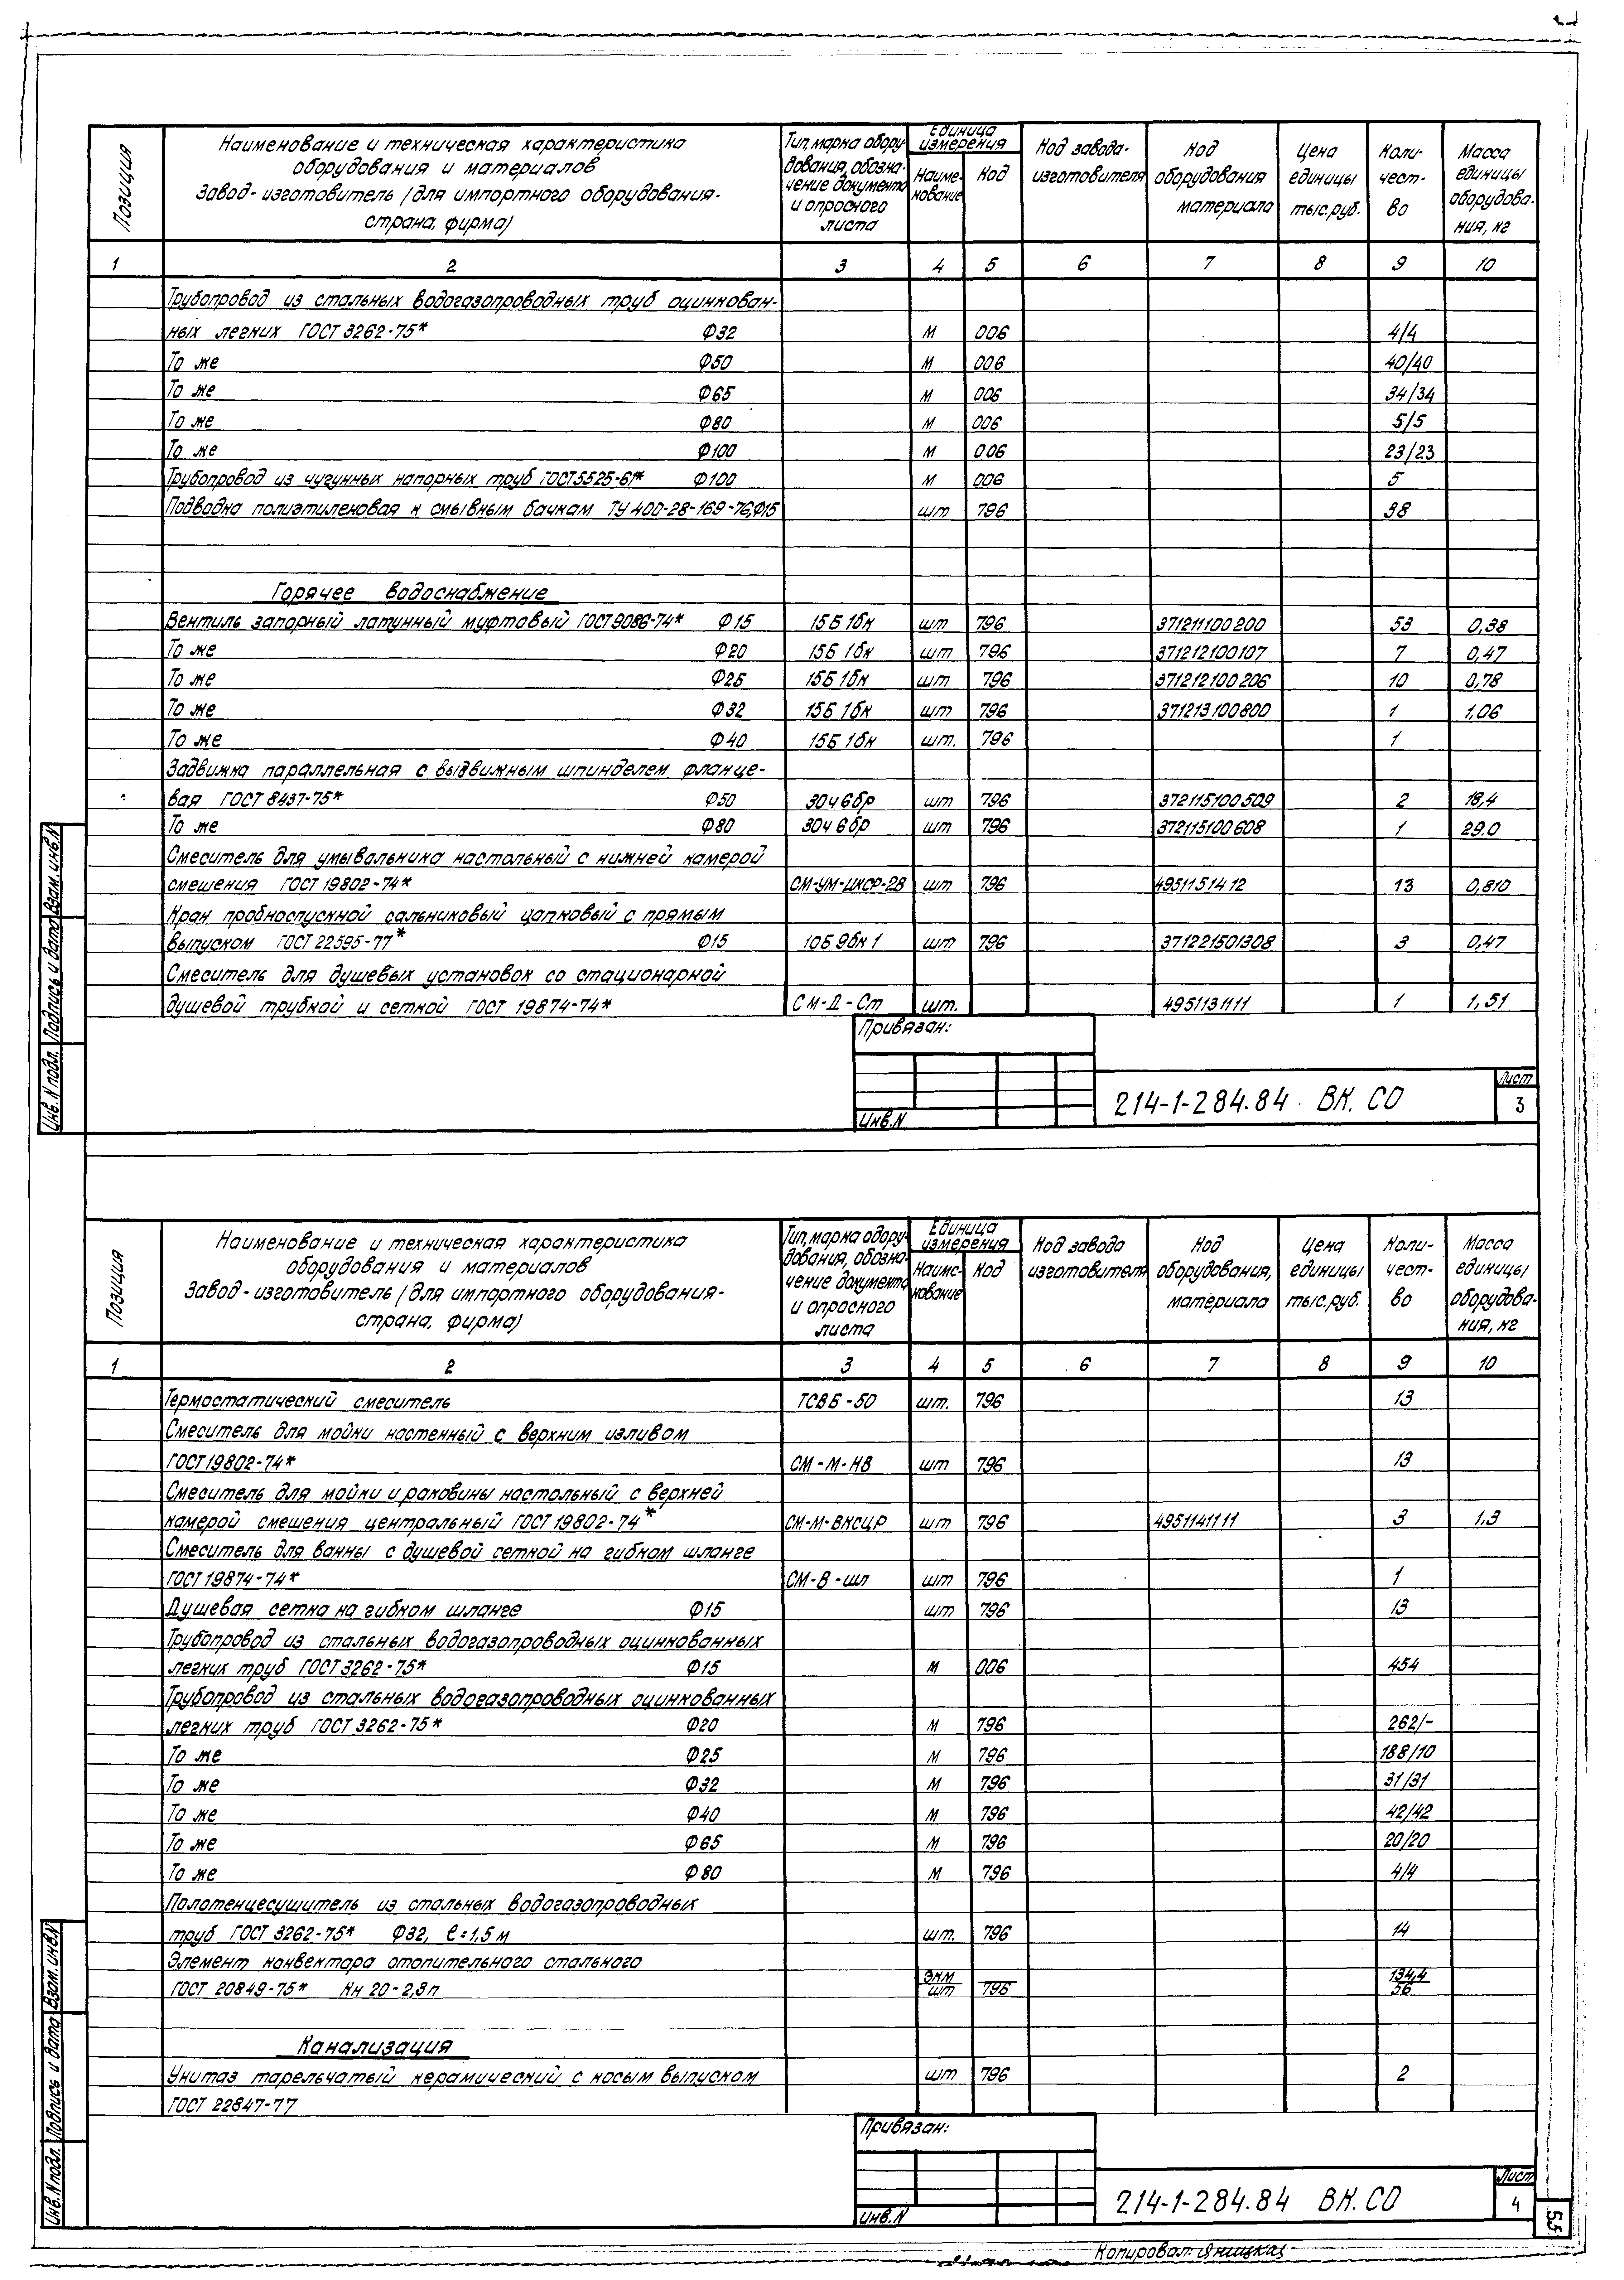 Позиция
Наименование и техническая характеристика
оборудования и материалов
Завод-изготовитель /для импортного оборудования-
страна, фирма)
Тип, марка обору-
дования, обозна-
чение документа
и опросного
листа
Единица
измерения
Наиме-
нование
Код
Код завода-
изготовителя
Код
оборудования
материала
Цена
единицы
тыс.руб.
Коли-
чест-
во
Масса
единицы
оборудова-
ния, кг
1 2 3 4 5 6 7 8 9 10
Трубопровод из стальных водогазопроводных труб оцинкован-
ных легких ГОСТ 3262-75* Ф32 м 006 4/4
То же Ф50 м 006 40/40
То же Ф65 м 006 34/34
То же Ф80 м 006 5/5
То же Ф100 м 006 23/23
Трубопровод из чугунных напорных труб ГОСТ5525-61* Ф100 м 006 5
Подводка полиэтиленовая к смывным бачкам ТУ 400-28-169-76,Ф15 шт 796 38
Горячее водоснабжение
Вентиль запорный латунный муфтовый ГОСТ9086-74* Ф15 15Б1бк шт 796 371211100200 53 0,38
То же Ф20 15Б1бк шт 796 371212100107 7 0,47
То же Ф25 15Б1бк шт 796 371212100206 10 0,78
То же Ф32 15Б1бк шт 796 371213100800 1 1,06
То же Ф40 15Б1бк шт. 796 1
Задвижка параллельная с выдвижным шпинделем фланце-
вая ГОСТ 8437-75* Ф50 30ч6бр шт 796 372115100509 2 18,4
То же Ф80 30ч6бр шт 796 372115100608 1 29.0
Смеситель для умывальника настольный с нижней камерой
смешения ГОСТ 19802-74* СМ-УМ-ЦКСР-28 шт 796 4951151412 13 0,810
Кран пробноспускной сальниковый цапковый с прямым
выпуском ГОСТ 22595-77* Ф15 10Б9бк1 шт 796 371221501308 3 0,47
Смеситель для душевых установок со стационарной
душевой трубкой и сеткой ГОСТ 19874-74* СМ-Д-Ст шт. 4951131111 1 1,51
Привязан:
Инв.N
214-1-284.84 ВК.СО
Лист
3
Инв.N подл. Подпись и дата Взам.инв.N
Позиция
Наименование и техническая характеристика
оборудования и материалов
Завод-изготовитель /для импортного оборудования-
страна, фирма)
Тип, марка обору-
дования, обозна-
чение документа
и опросного
листа
Единица
измерения
Наиме-
нование
Код
Код завода
изготовителя
Код
оборудования,
материала
Цена
единицы
тыс.руб.
Коли-
чест-
во
Масса
единицы
оборудова-
ния, кг
1 2 3 4 5 6 7 8 9 10
Термостатический смеситель ТСВБ-50 шт. 796 13
Смеситель для мойки настенный с верхним изливом
ГОСТ19802-74* СМ-М-НВ шт 796 13
Смеситель для мойки и раковины настольный с верхней
камерой смешения центральный ГОСТ19802-74* СМ-М-ВКСЦР шт 796 4951141111 3 1,3
Смеситель для ванны с душевой сеткой на гибком шланге
ГОСТ19874-74* СМ-В-шл шт 796 1
Душевая сетка на гибком шланге Ф15 шт 796 13
Трубопровод из стальных водогазопроводных оцинкованных
легких труб ГОСТ3262-75* Ф15 м 006 454
Трубопровод из стальных водогазопроводных оцинкованных
легких труб ГОСТ3262-75* Ф20 м 796 262/-
То же Ф25 м 796 188/10
То же Ф32 м 796 31/31
То же Ф40 м 796 42/42
То же Ф65 м 796 20/20
То же Ф80 м 796 4/4
Полотенцесушитель из стальных водогазопроводных
труб ГОСТ 3262-75* Ф32, ℓ=1,5м шт. 796 14
Элемент конвектора отопительного стального
ГОСТ 20849-75* Кн 20-2,3п экм/шт 796 134,4/56
Канализация
Унитаз тарельчатый керамический с косым выпуском шт 796 2
ГОСТ 22847-77
Привязан:
Инв.N
214-1-284.84 ВК.СО
Лист
4
Инв.N подл. Подпись и дата Взам.инв.N
55
Копировал: